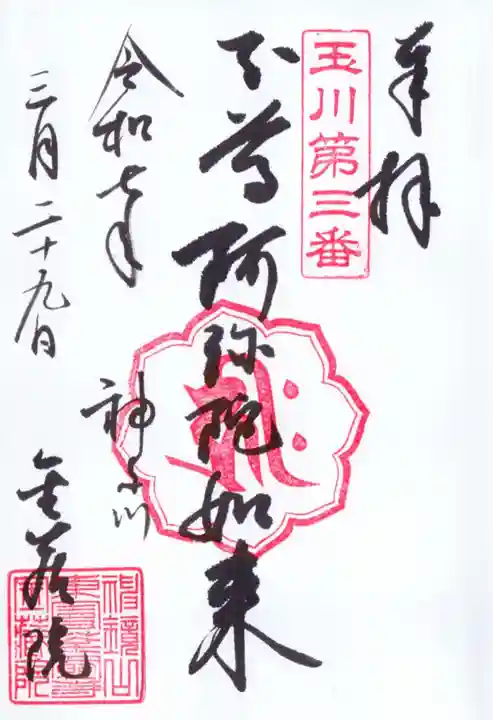 奉拝
玉川第三番
本尊 阿弥陀如来
令和七年
三月二十九日
金蔵院